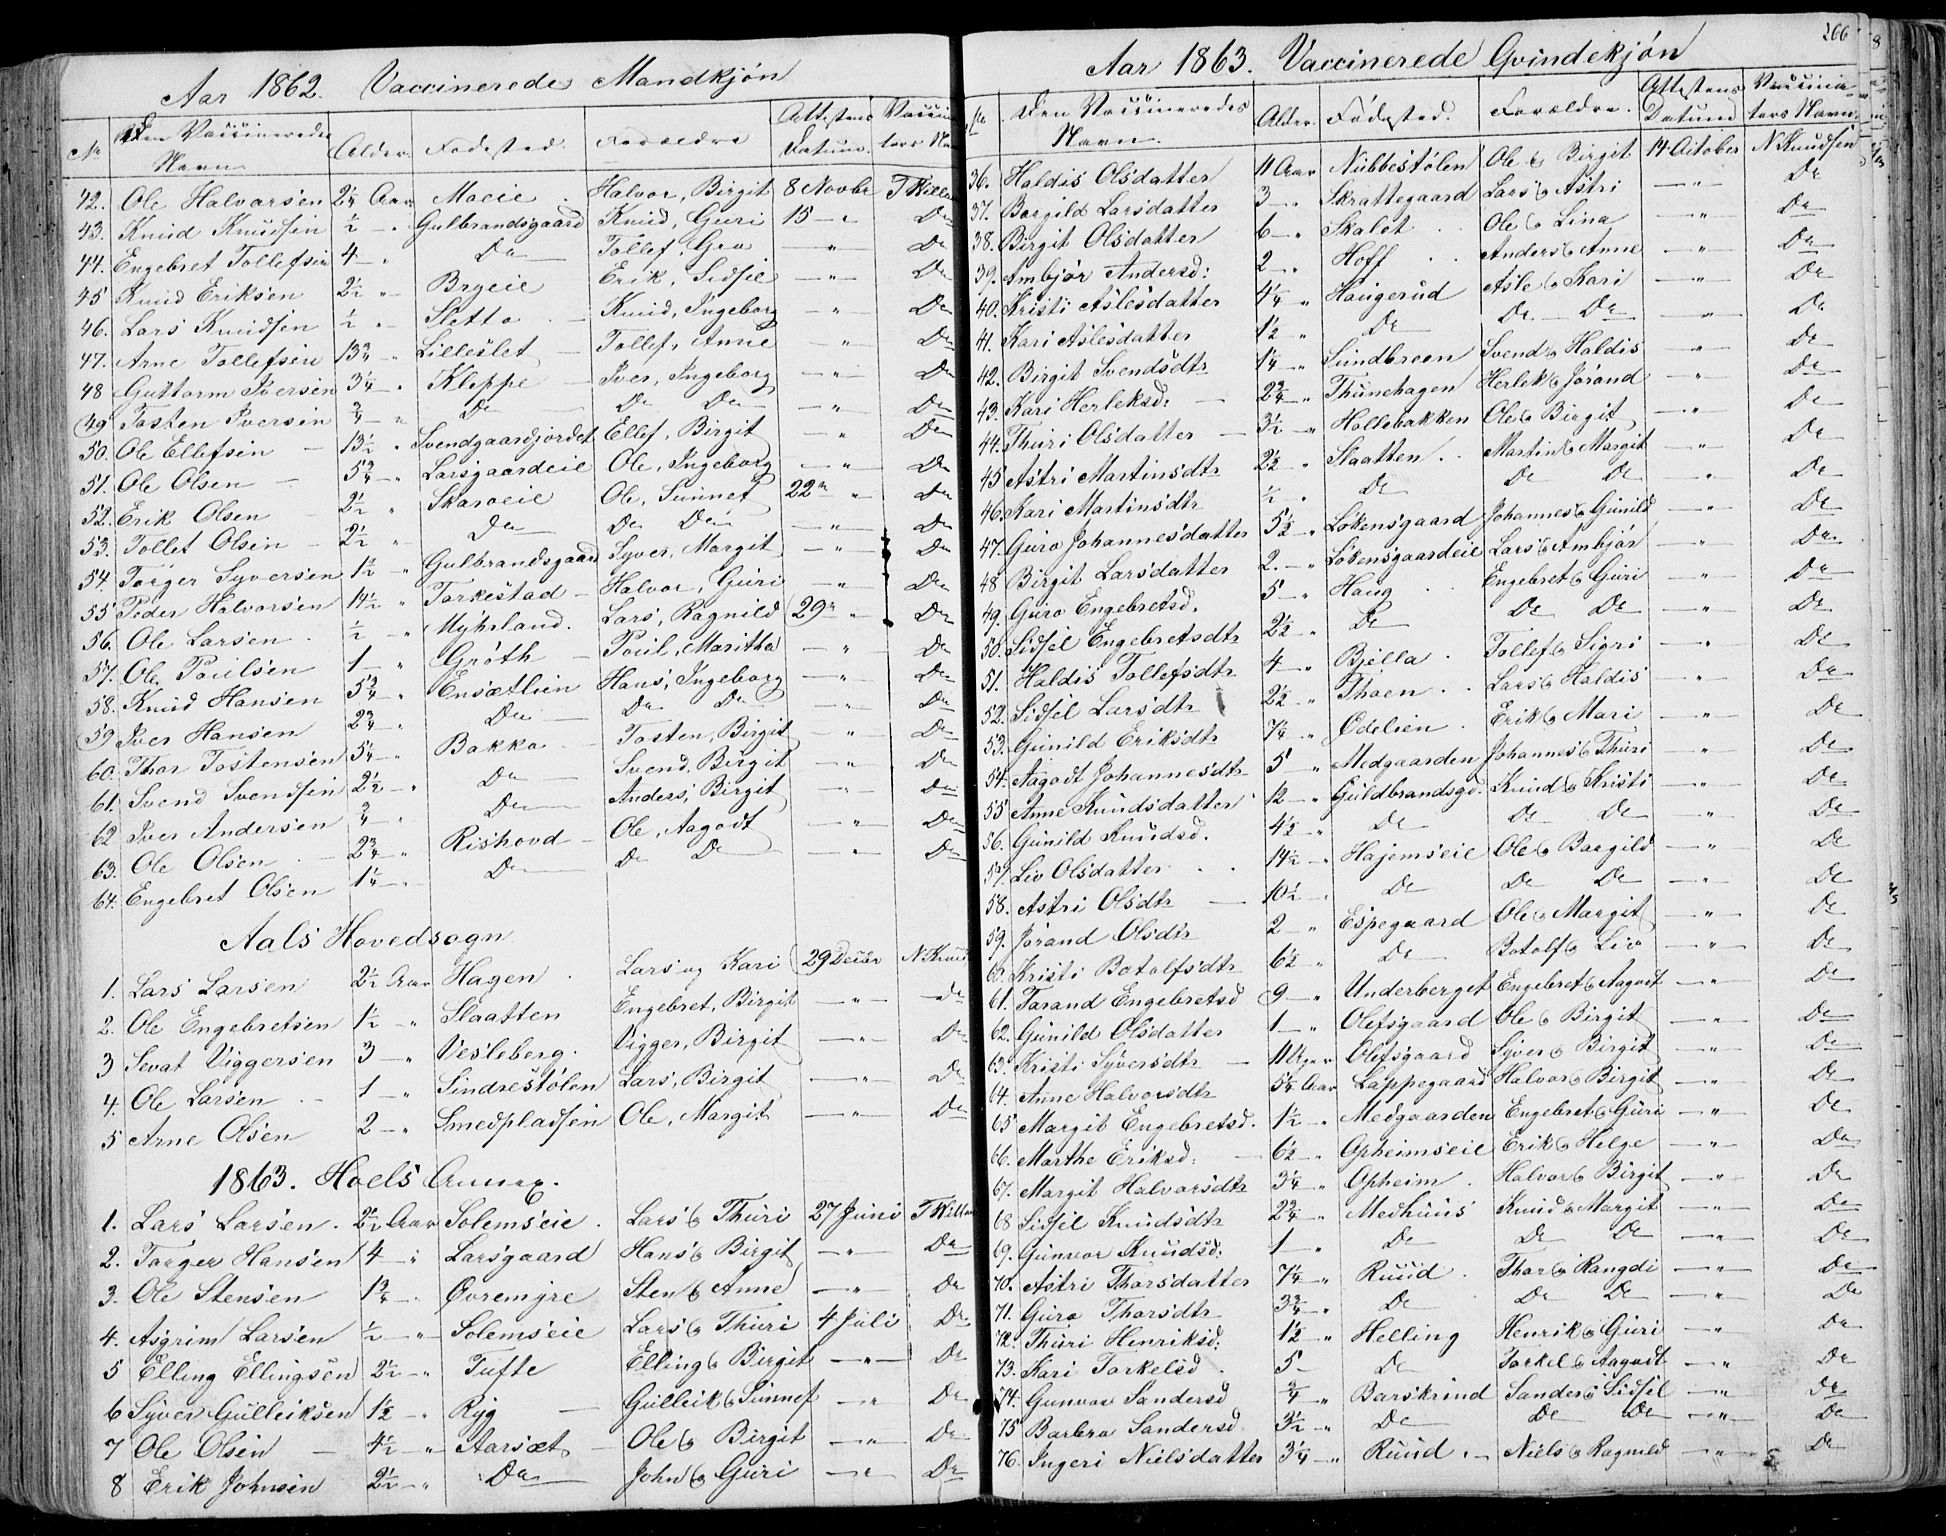 Aar 1862. Vaccinerede Mandkjøn
No Den Vaccineredes Navn. Alder. Fødested. Forældre Attestens Datum. Vaccina tors Na
42. Ole Halvorsen 2 1/4 Aar Moeie Halvor, Birgit 8 Novbr T Wille
43. Knud Knudsen 1/2 - " Gulbrandsgaard Knud, Guri 15 - " Do
44. Engebret Tollefsen 4 - " Do Tollef, Gro - " - Do
45 Knud Eriksen 2 1/2 " - Bryeie Erik, Sidsel - " - Do
46. Lars Knudsen 1/2 " - Sletto Knud, Ingeborg - " Do
47. Arne Tollefsen 13 3/4 - " Lilleslet Tollef, Anne - " - Do
48 Guttorm Iversen 3 1/4 - " Kleppe Iver, Ingeborg - " - Do
49 Tosten Iversen 3/4 " Do Do Do - " - Do
50. Ole Ellefsen 13 1/2 " Svendgaardjordet Ellef, Birgit - " - Do
51. Ole Olsen 5 3/4 - " Larsgaardeie Ole, Ingeborg - " - Do
52. Erik Olsen 2 1/2 " Skaroeie Ole, Sunnef 22 " " Do
53. Tollef Olsen 2 1/2 " - Do Do Do - " - Do
54. Torger Syversen 1 1/2 " Gulbrandsgaard Syver, Margit - " - Do
55 Peder Halvorsen 14 1/2 " Torkestad Halvor, Guri - " Do
56. Ole Larsen 1/2 - " Myhrland. Lars, Ragnild 29 " " Do
57. Ole Poulsen 1 - " Grøth Poul, Maritha - " Do
58. Knud Hansen 5 3/4 " Ensætlien Hans, Ingeborg - " - Do
59 Iver Hansen 2 3/4 " Do Do Do " Do
60. Thor Tostensen 5 1/4 - " Bakko Tosten, Birgit " Do
61. Svend Svendsen 2 1/2 - " Do Svend, Birgit - " - Do
62 Iver Andersen 3/4 - " Do Anders, Birgit - " - Do
63. Ole Olsen 2 3/4 - " Rishovd Ole, Aagodt - " - Do
64. Engebret Olsen 1 1/4 - " Do Do Do " Do
Aals Hovedsogn
1. Lars Larsen 2 1/2 Aar Hagen Lars og Kari 29 Decbr N. Knud
2. Ole Engebretsen 1 1/2 - " Slaatten Engebret, Birgit - " - Do
3 Sevat Viggersen 3 - " Vesleberg. Vigger, Birgit - " - Do
4. Ole Larsen 1 - " Sindrestølen Lars, Birgit - " - Do
5 Arne Olsen 2 - " Smedpladsen Ole, Margit - " - Do
1863. Hoels Annex.
1. Lars Larsen. 2 1/2 Aar Solemseie Lars & Thuri 27 Juni T Will
2. Torger Hansen 4 - " Larsgaard Hans & Birgit - " - Do
3. Ole Stensen 1 3/4 - " Øvremyre Sten & Anne - " - Do
4. Asgrim Larsen 1/2 - " Solemseie Lars & Thuri 4 Juli Do
5 Elling Ellingsen 2 1/2 - " Tufte Elling & Birgit - " - Do
6 Syver Gulleiksen 1 1/2 - " Ryg Gulleik & Sunnef - " - Do
7 Ole Olsen 4 1/2 - " Aarsæt Ole & Birgit - " - Do
8 Erik Johnsen 2 1/2 - " Do John & Guri - " - Do
266
Aar 1863. Vaccinerede Qvindekjøn
No Den Vaccineredes Navn. Alder. Fødested. Forældre. Attestens Datum Vaccina tors Navn.
36. Haldis Olsdatter 11 Aar Nubbestølen Ole & Birgit 14 October N Knudsen
37. Borgild Larsdatter 3 - " Skrattegaard Lars & Astri - " - Do
38. Birgit Olsdatter 6 - " Skalet Ole & Lina - " - Do
39. Ambjør Andersd: 2 - " Hoff Anders & Anne - " - Do
40. Kristi Aslesdatter 4 1/4 " Haugerud Asle & Kari - " - Do
41. Kari Aslesdatter 1 1/2 " Do Do Do - " - Do
42. Birgit Svendsdtr 1 1/4 - " Sundbreen Svend & Haldis - " - Do
43. Kari Herleksd: 2 3/4 - " Thunehagen Herlek & Jørand - " - Do
44. Thuri Olsdatter 3 1/2 - " Hollebakken Ole & Birgit - " - Do
45 Astri Martinsdtr 2 1/2 - " Slaatten Martin & Margit - " - Do
46. Kari Martinsdtr 1/2 " Do Do Do - " - Do
47. Guro Johannesdatter 5 1/2 - " Løkensgaard Johannes & Gunild - " - Do
48 Birgit Larsdatter 2. - " Løkensgaardeie Lars & Ambjør - " - Do
49. Guro Engebretsd. 5 - " Haug Engebret & Guri - " - Do
50. Sidsel Engebretsdtr 2 1/2 - " Do Do Do - " - Do
51. Haldis Tollefsdtr 4 - " Bjella Tollef & Sigri - " - Do
52. Sidsel Larsdtr 2 1/2 - " Thoen Lars & Haldis - " - Do
53. Gunild Eriksdtr 7 1/4 " Ødelien Erik & Mari - " - Do
54. Aagodt Johannesdtr 5 " Medgaarden Johannes & Thuri - " - Do
55 Anne Knudsdatter 12 - " Guldbrandsgd. Knud & Kristi - " - Do
56. Gunild Knudsd. 4 1/2 " Do Do Do - " - Do
57. Liv Olsdatter 14 1/2 - " Hajemseie Ole & Borgild - " - Do
58. Astri Olsdtr 10 1/2 - " Do Do Do - " - Do
59. Jørand Olsdtr 2 - " Espegaard Ole & Margit - " - Do
60. Kristi Botolfsdtr 6 1/2 " Do Botolf & Liv - " - Do
61. Torand Engebretsd 9 - " Underberget Engebret & Aagodt - " - Do
62. Gunild Olsdatter 1 - " Olefsgaard Ole & Birgit - " - Do
63. Kristi Syversdtr 11 Uger Olefsgaard Syver & Birgit - " - Do
64. Anne Halvorsdtr 5 1/4 Aar Lappegaard Halvor & Birgit - " - Do
65 Margit Engebretsd. 1 1/2 - " Medgaarden Engebret & Guri - " - Do
66. Marthe Eriksd: 6 1/2 " Opheimseie Erik & Helge - " - Do
67. Margit Halvorsdtr 3 1/4 " Opheim Halvor & Birgit - " - Do
68 Sidsel Knudsdtr 2 3/4 " Medhuus Knud & Margit - " - Do
69. Gunvor Knudsd: 1 " Do Do Do - " - Do
70. Astri Thorsdatter 7 1/4 - " Ruud Thor & Rangdi - " - Do
71. Guro Thorsdtr 3 3/4 - " Do Do Do - " - Do
72. Thuri Henriksd: 1 1/2 " Helling Henrik & Guri - " - Do
73. Kari Torkelsd 5 - Do Torkel & Aagodt - " Do
74. Gunvor Sandersd 3/4 " Barskrind Sander & Sidsel - " - Do
75 Barbro Sandersd 3 1/2 - " Do Do Do - " - Do
76. Ingeri Nielsdatter 3 1/4 - " Ruud Niels & Ragnild - " - Do